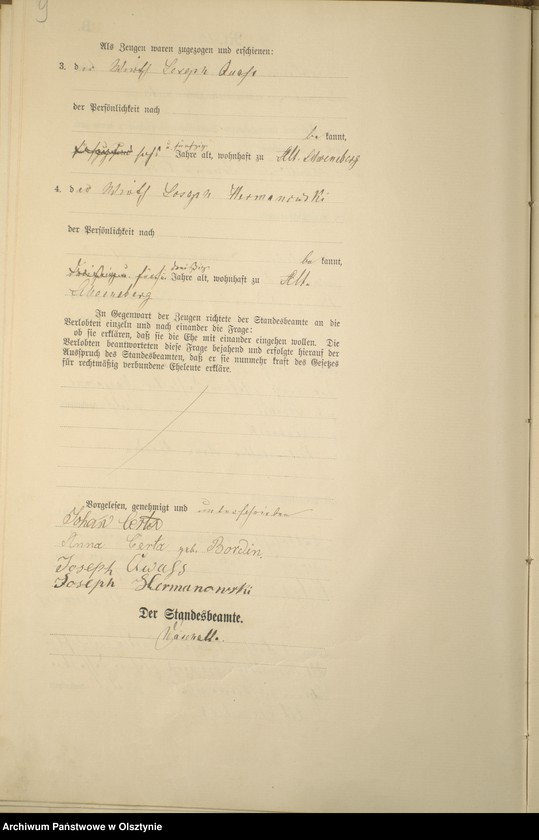 9
Als Zeugen waren zugezogen und erschienen:
3. der Wirth Joseph Quass
der Persönlichkeit nach
be kannt,
sechs u fünfzig Jahre alt, wohnhaft zu Alt-Schoeneberg
4. der Wirth Joseph Hermanowski
der Persönlichkeit nach
be kannt,
fünf u dreißig Jahre alt, wohnhaft zu Alt-
Schoeneberg
In Gegenwart der Zeugen richtete der Standesbeamte an die
Verlobten einzeln und nach einander die Frage:
ob sie erklären, daß sie die Ehe mit einander eingehen wollen. Die
Verlobten beantworteten diese Frage bejahend und erfolgte hierauf der
Ausspruch des Standesbeamten, daß er sie nunmehr kraft des Gesetzes
für rechtmäßig verbundene Eheleute erkläre.
Vorgelesen, genehmigt und unterschrieben
Johan Certa
Anna Certa geb. Bordin
Joseph Qwass
Joseph Hermanowski
Der Standesbeamte.
Archiwum Państwowe w Olsztynie